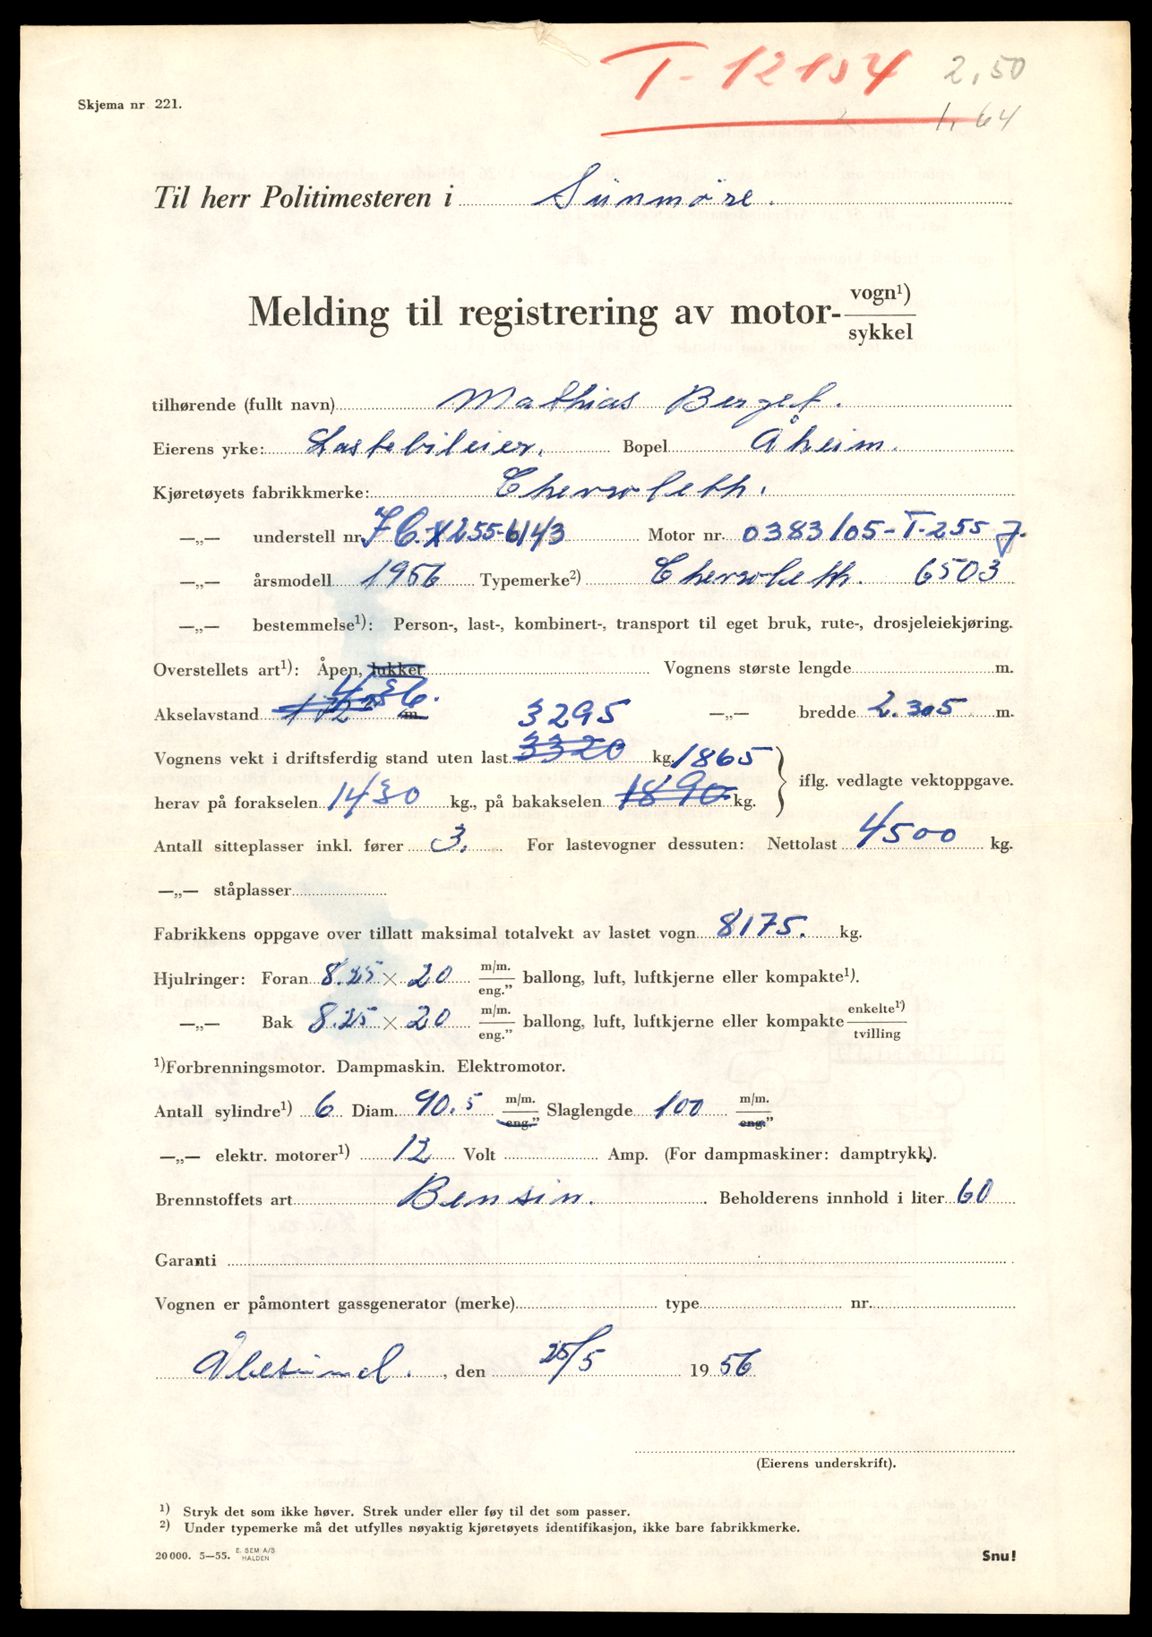 T-12154 2,50
1.64
Skjema nr 221.
Til herr Politimesteren i Sunnmøre.
Melding til registrering av motor- vogn¹) sykkel
tilhørende (fullt navn) Mathias Berget.
Eierens yrke: Lastebileier. Bopel Åheim.
Kjøretøyets fabrikkmerke: Chevroleth.
—„— understell nr 255-6143 Motor nr. 0383105-T-255 J.
—„— årsmodell 1956 Typemerke²) Chevroleth. 6503
—„— bestemmelse¹): Person-, last-, kombinert-, transport til eget bruk, rute-, drosjeleiekjøring.
Overstellets art¹): Åpen, lukket Vognens største lengde m.
Akselavstand m —„— bredde 2.305 m.
3295
Vognens vekt i driftsferdig stand uten last 3320 kg. 1865
iflg. vedlagte vektoppgave.
herav på forakselen 1430 kg., på bakakselen 1890 kg.
Antall sitteplasser inkl. fører 3. For lastevogner dessuten: Nettolast 4500 kg.
—„— ståplasser
Fabrikkens oppgave over tillatt maksimal totalvekt av lastet vogn 8175. kg.
Hjulringer: Foran 8.25 × 20 m/m. eng.” ballong, luft, luftkjerne eller kompakte¹).
—„— Bak 8.25 × 20 m/m. eng.” ballong, luft, luftkjerne eller kompakte enkelte¹) tvilling
¹)Forbrenningsmotor. Dampmaskin. Elektromotor.
Antall sylindre¹) 6 Diam. 90.5 m/m. eng.” Slaglengde 100 m/m. eng.”
—„— elektr. motorer¹) 12 Volt Amp. (For dampmaskiner: damptrykk).
Brennstoffets art Bensin. Beholderens innhold i liter 60
Garanti
Vognen er påmontert gassgenerator (merke) type nr.
Ålesund. , den 25/5 19 56
(Eierens underskrift).
¹) Stryk det som ikke høver. Strek under eller føy til det som passer.
²) Under typemerke må det utfylles nøyaktig kjøretøyets identifikasjon, ikke bare fabrikkmerke.
20 000. 5—55. E. SEM A/S HALDEN Snu!